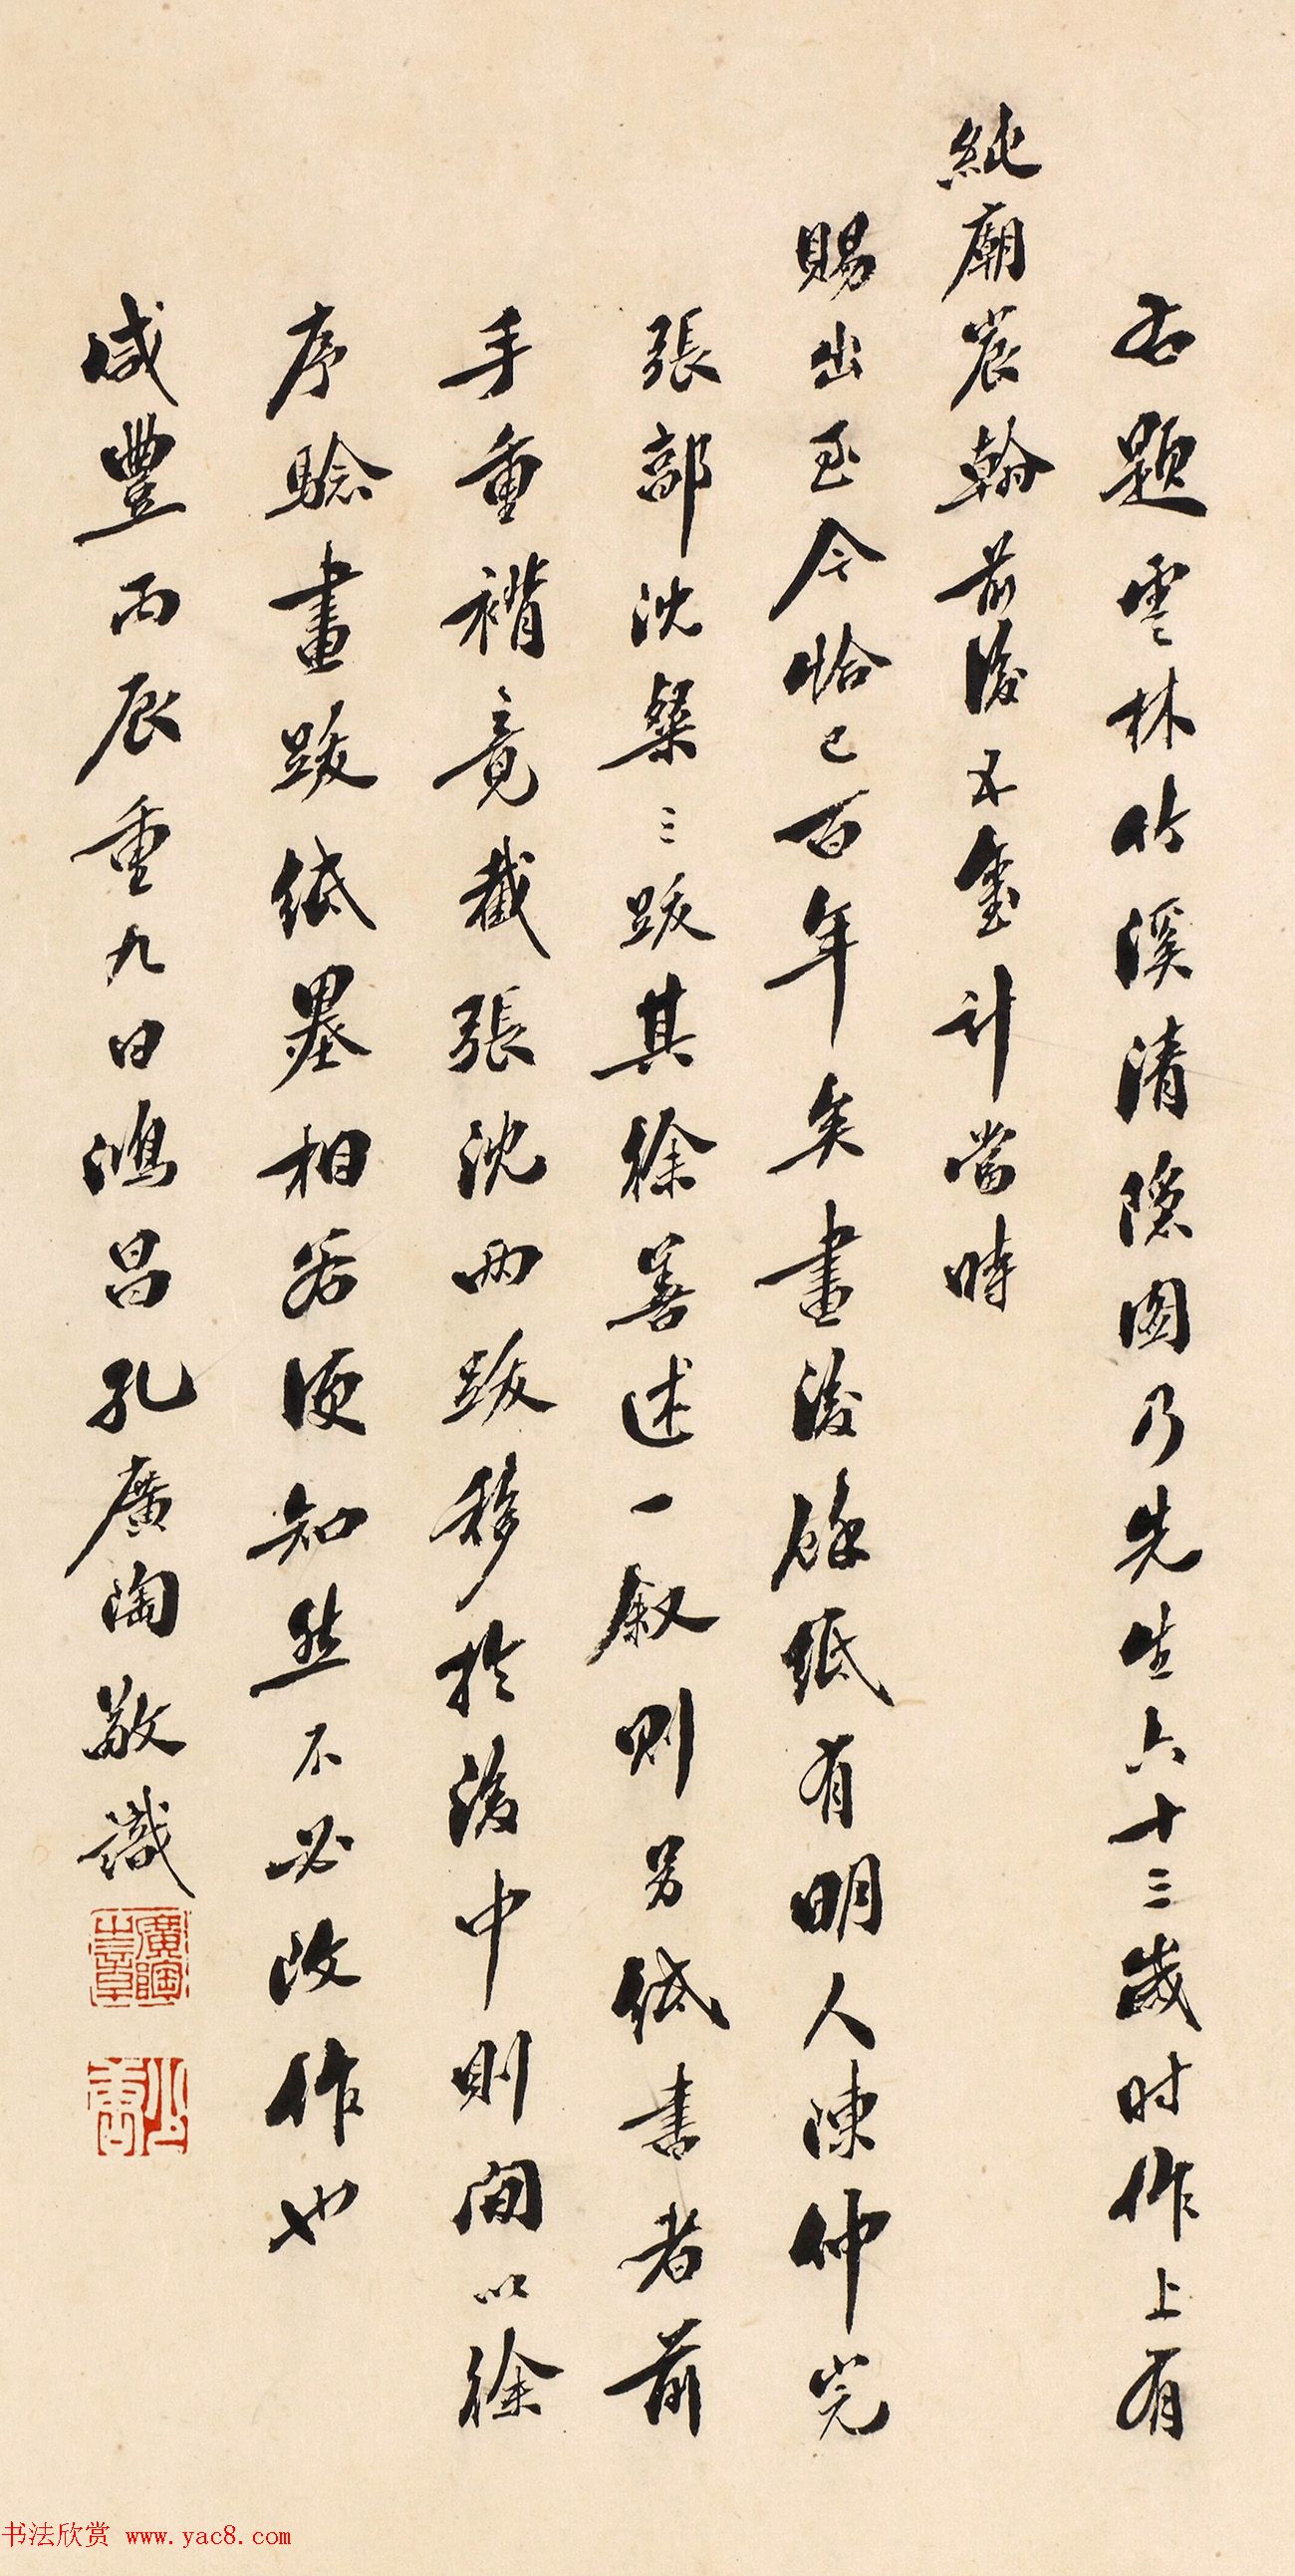 右題雲林竹溪清隱圖乃先生六十三歲时作上有
純廟宸翰前後五璽計當時
賜出至今恰已百年矣畫後餘紙有明人陳仲完
張部沈粲三跋其徐善述一敘則另紙書者前
手重褙竟截張沈兩跋移於後中則間以徐
序驗畫跋紙墨相若便知然不必改作也
咸豐丙辰重九日鴻昌孔廣陶敬識
廣陶之章
少唐
书法欣赏 www.yac8.com